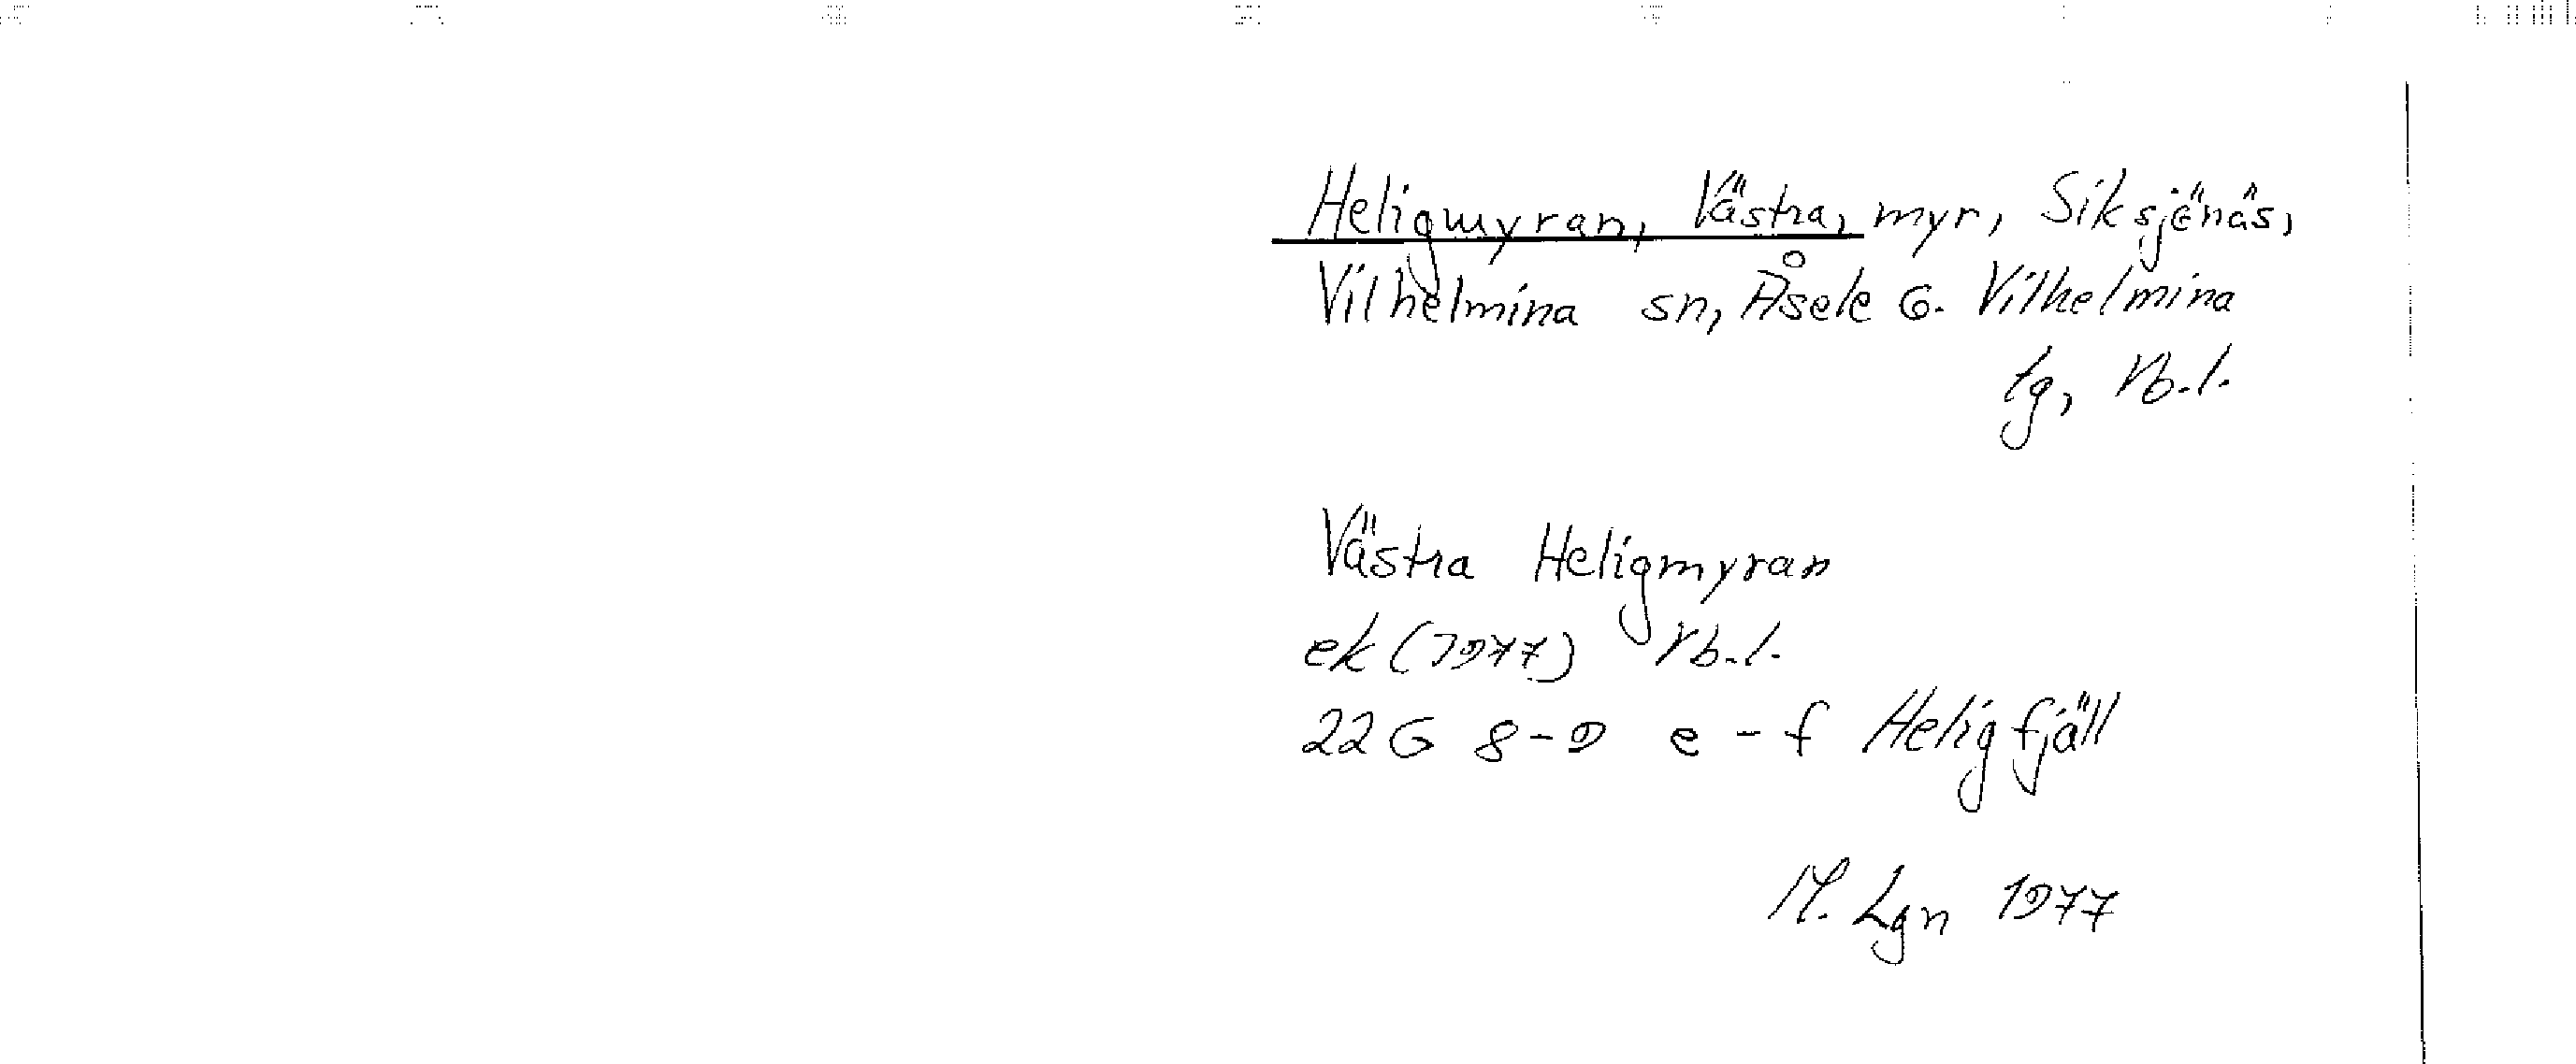 Heligmyran, Västra, myr, Siksjönäs,
Vilhelmina sn, Åsele o. Vilhelmina
tg, Vb.l.
Västra Heligmyran
ek (1977) Vb.l.
22 G 8-9 e - f Heligfjäll
M. Lgn 1977